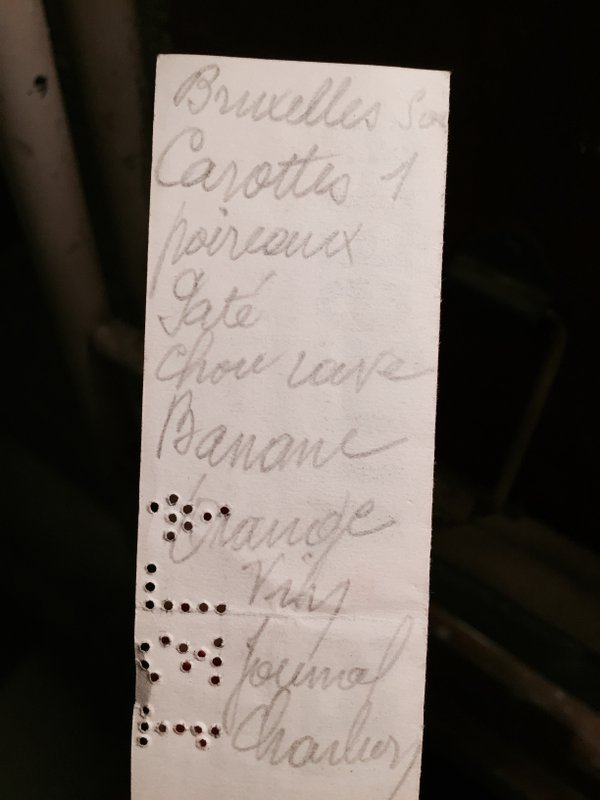 Bruxelles
Carottes 1
poireaux
Paté
chou rave
Banane
Orange
Vin
Journal